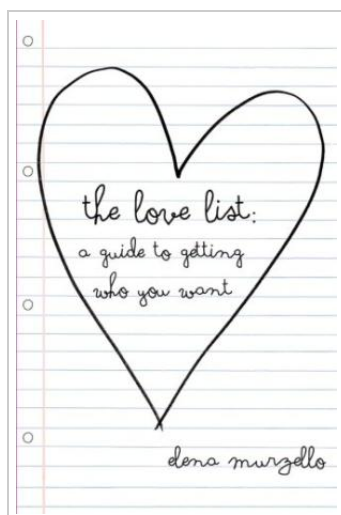 the love list:
a guide to getting
who you want
elena murzello